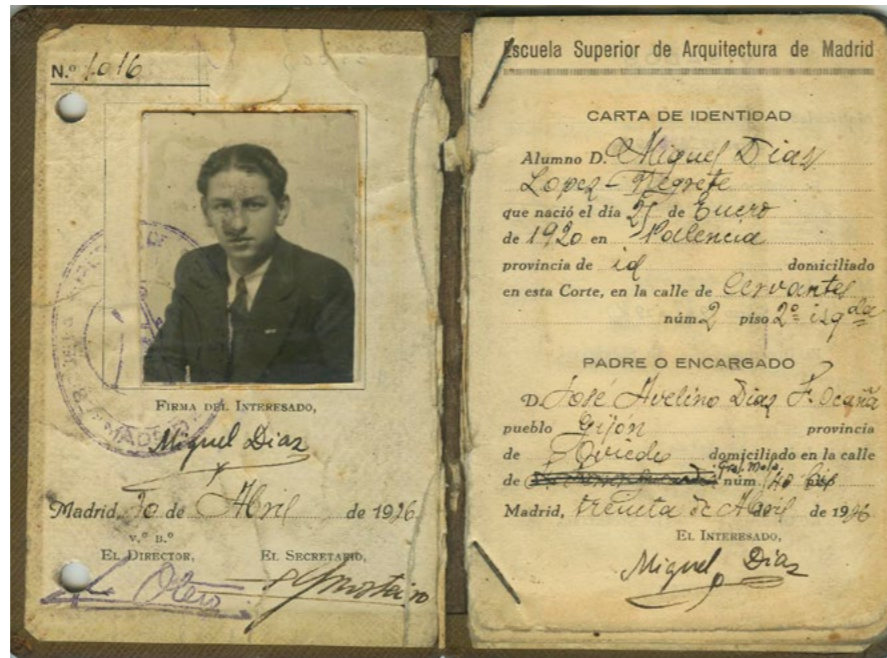 N.º 1.016
FIRMA DEL INTERESADO,
Miguel Diaz
Madrid, 30 de Abril de 1936
V.º B.º
EL DIRECTOR, EL SECRETARIO,
Otero
MADRID
Escuela Superior de Arquitectura de Madrid
CARTA DE IDENTIDAD
Alumno D. Miguel Diaz
Lopez - Negrete
que nació el día de Enero
de 1920 en Palencia
provincia de id domiciliado
en esta Corte, en la calle de Cervantes
núm. 2 piso 2º izqda
PADRE O ENCARGADO
D. José Avelino Diaz F. Ocaña
pueblo Gijón provincia
de Oviedo domiciliado en la calle
Gral. Mola
de núm. 140
Madrid, treinta de Abril de 1936
EL INTERESADO,
Miguel Diaz